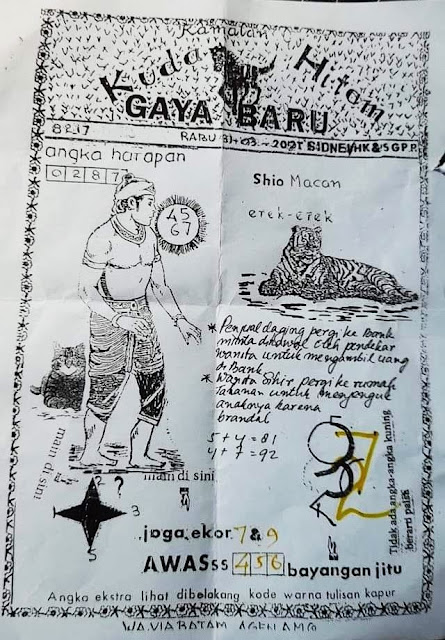 Ramalan
Kuda Hitam
GAYA BARU
8217
RABU 31-03-2021 SIDNEY HK & SGP P.
angka harapan
0 2 8 7
45
67
Shio Macan
erek-erek
* Penjual daging pergi ke Bank
minta dikawal oleh pendekar
wanita untuk mengambil uang
di Bank
* Wanita Sihir pergi ke rumah
Tahanan untuk menjenguk
anaknya karena
brandal
5 + 4 = 81
4 + 7 = 92
main disini
main di sini
2 ?
3
5
Tidak ada angka-angka kuning
berarti palsu
joga ekor 7 & 9
AWASss 456 bayangan jitu
Angka ekstra lihat dibelakang kode warna tulisan kapur
WA.VIA BATAM AGEN AMO